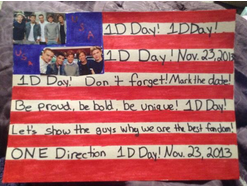 1D Day! 1DDay!
1D Day! Nov. 23, 2013
1D Day! Don't forget! Mark the date!
Be proud, be bold, be unique! 1D Day!
Let's show the guys why we are the best fandom!
ONE Direction 1D Day! Nov. 23, 2013